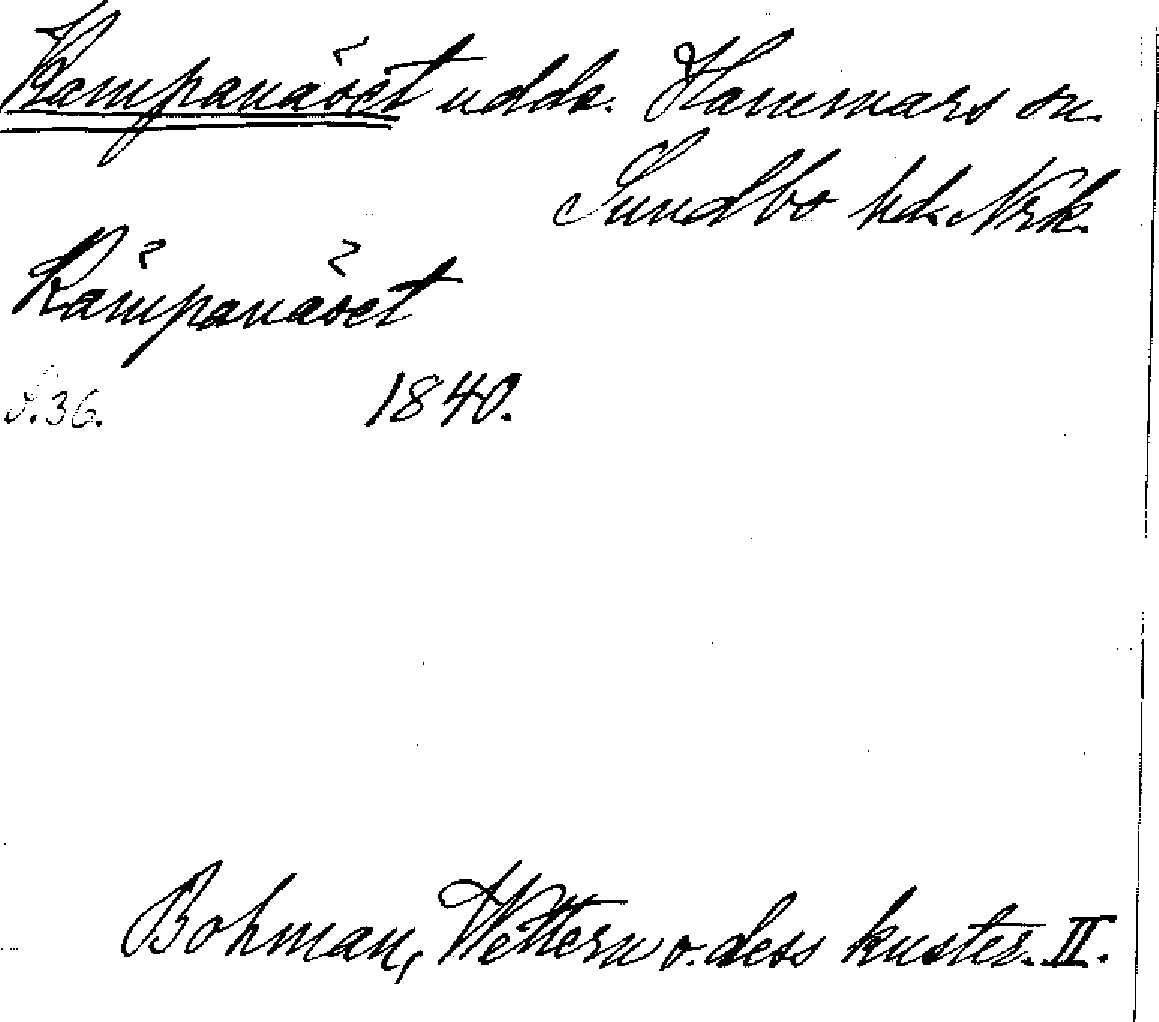 Kampanäset udde. Hammars sn.
Sundbo hd. Nrk.
Kämpanäset
S.36. 1840.
Bohman, Wettern o. dess kuster. II.